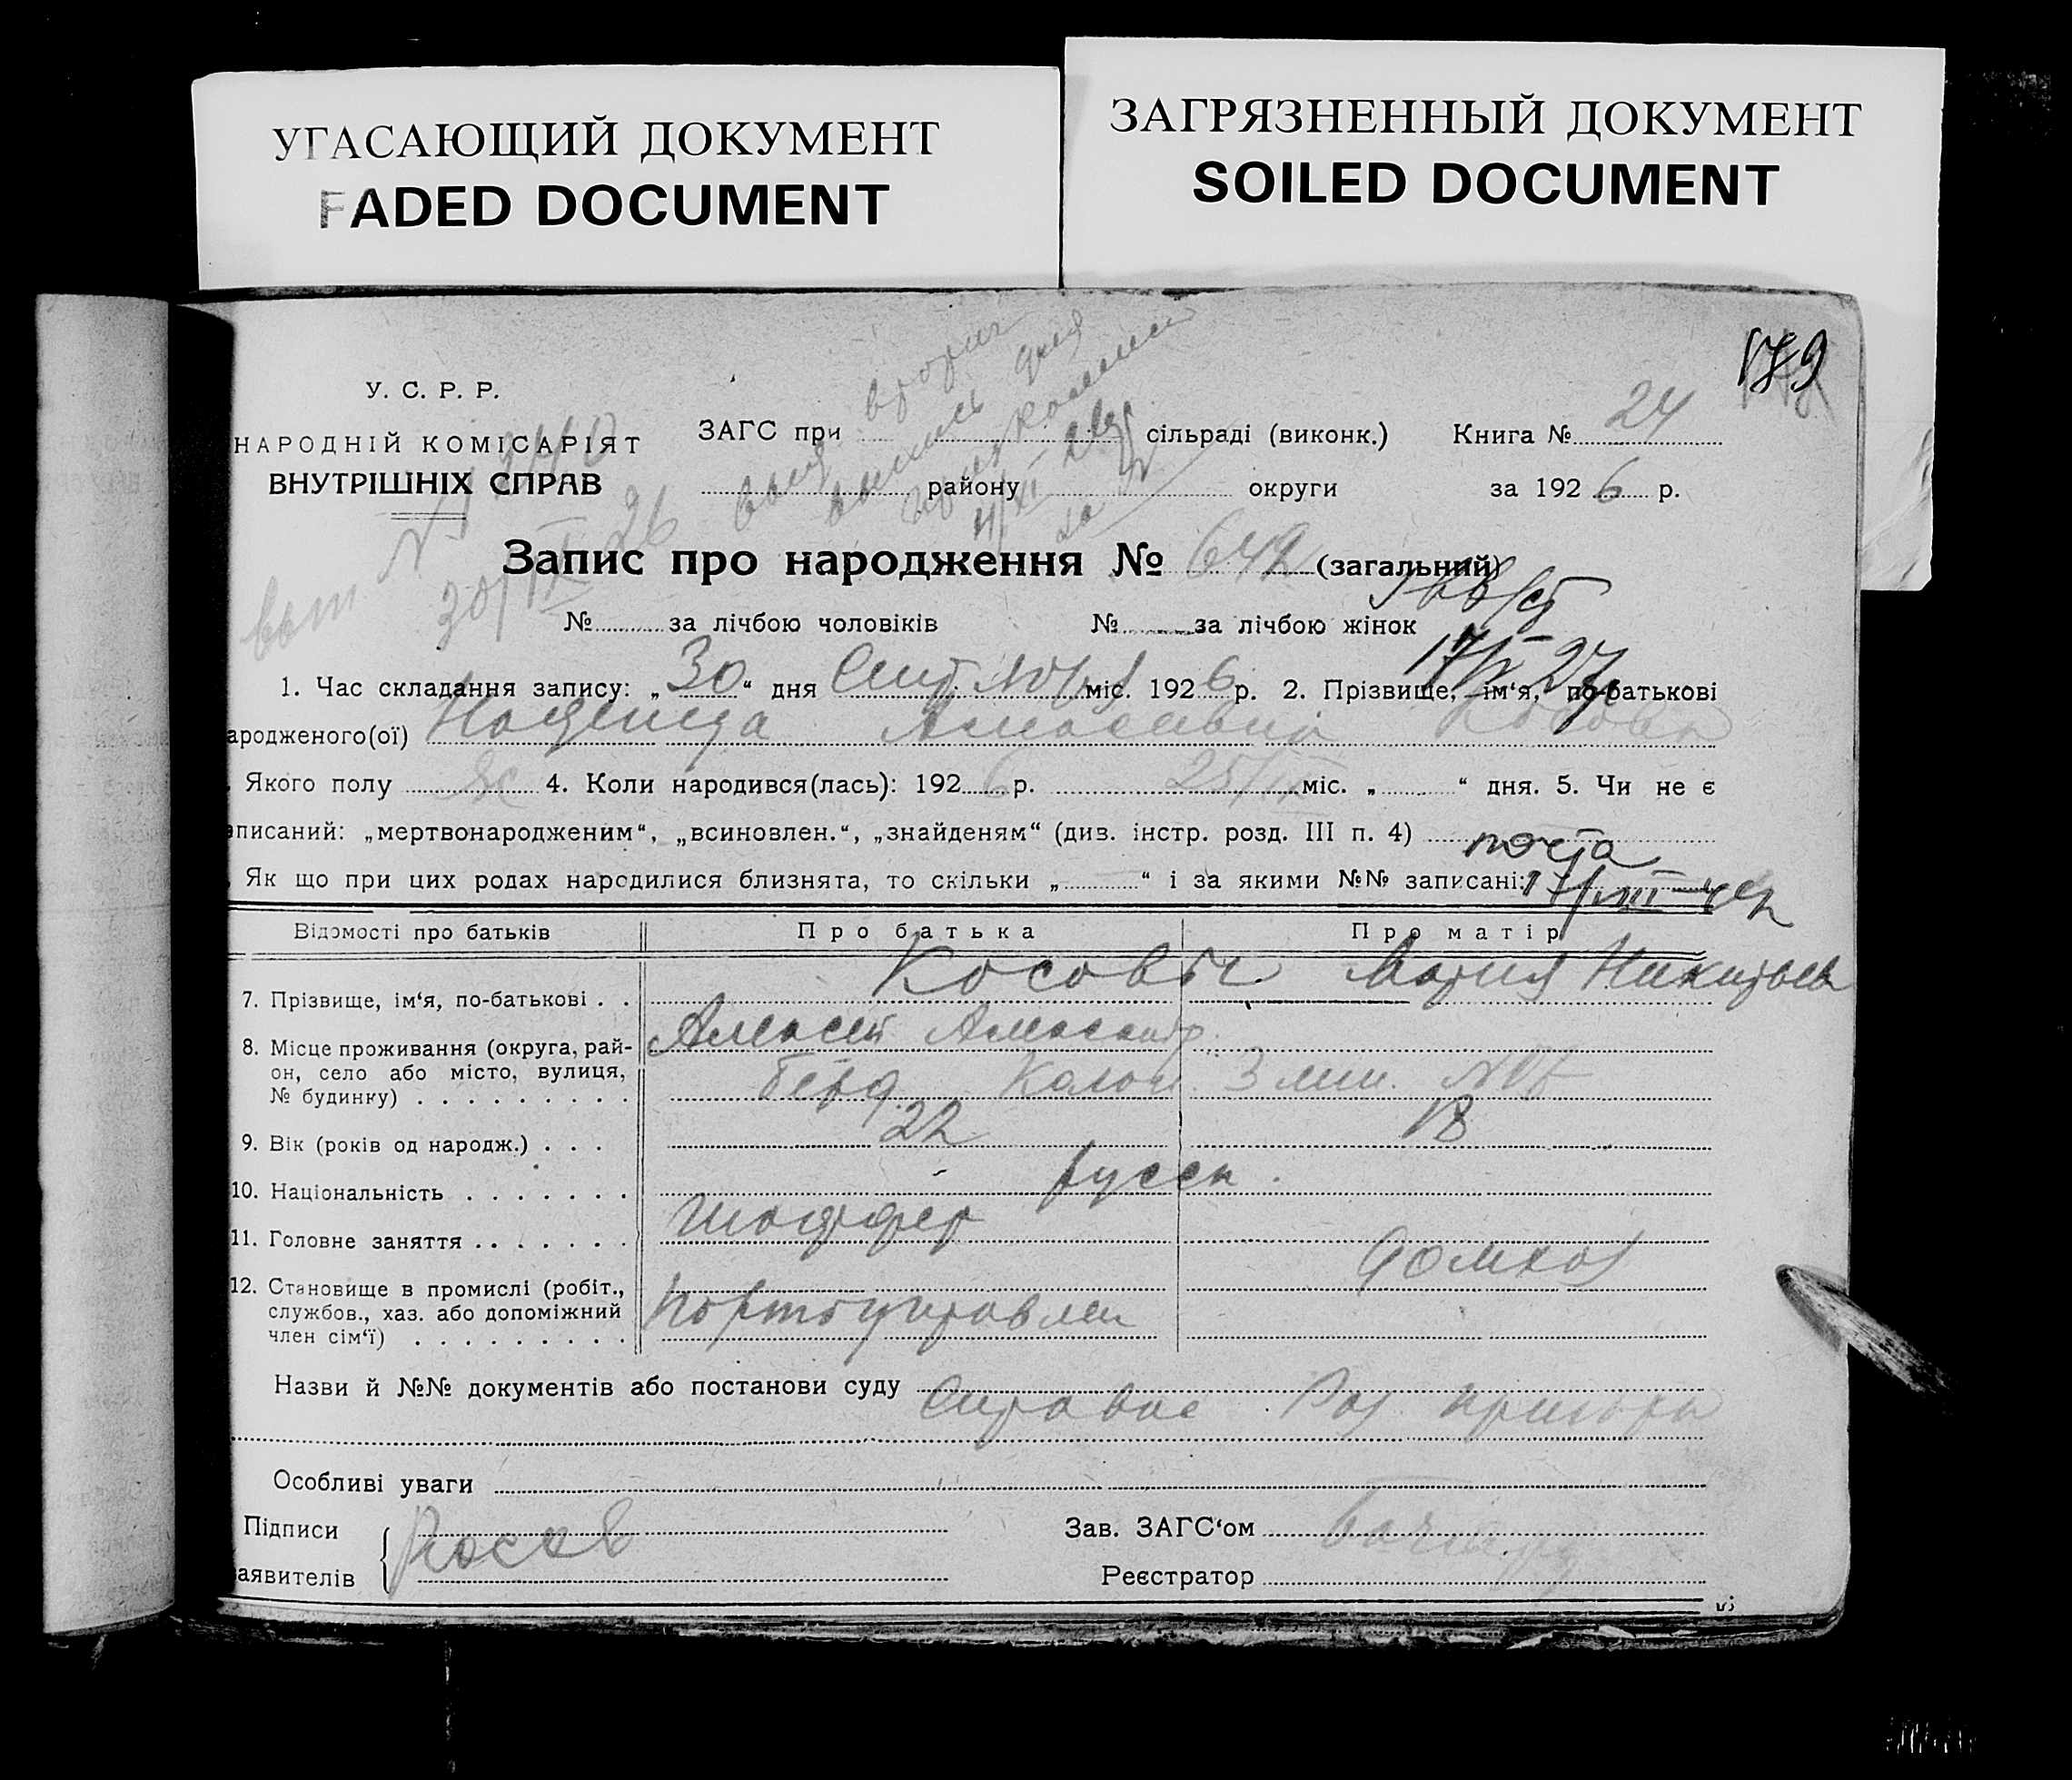 УГАСАЮЩИЙ ДОКУМЕНТ
FADED DOCUMENT
ЗАГРЯЗНЕННЫЙ ДОКУМЕНТ
SOILED DOCUMENT
179
У. С. Р. Р.
НАРОДНІЙ КОМІСАРІЯТ
ВНУТРІШНІХ СПРАВ
ЗАГС при сільраді (виконк.) Книга № 24
району округи за 1926 р.
Запис про народження № 642 (загальний)
№ за лічбою чоловіків № за лічбою жінок
1. Час складання запису: „30“ дня Сентября міс. 1926 р. 2. Прізвище, ім‘я, по-батькові
ародженого(ої) Надежда Алексеевна Косова
Якого полу ж 4. Коли народився(лась): 1926 р. 25/IX міс. „ “ дня. 5. Чи не є
аписаний: „мертвонародженим“, „всиновлен.“, „знайденям“ (див. інстр. розд. III п. 4)
почта
Як що при цих родах народилися близнята, то скільки „ “ і за якими №№ записані:
Відомості про батьків Про батька Про матір
7. Прізвище, ім‘я, по-батькові . . Косовы Мария Никитьев
Алексей Александр.
8. Місце проживання (округа, рай-
он, село або місто, вулиця,
№ будинку) . . . . . . . . . Колон. 3 лин.
9. Вік (років од народж.) . . . 22 18
10. Національність . . . . . . . русск.
11. Головне заняття . . . . . . . Шоффер домхоз
12. Становище в промислі (робіт.,
службов., хаз. або допоміжний
член сім‘ї) . . . . . . . . . Портоуправлен
Назви й №№ документів або постанови суду Справка
Особливі уваги
Підписи
аявителів Косов
Зав. ЗАГС‘ом
Реєстратор